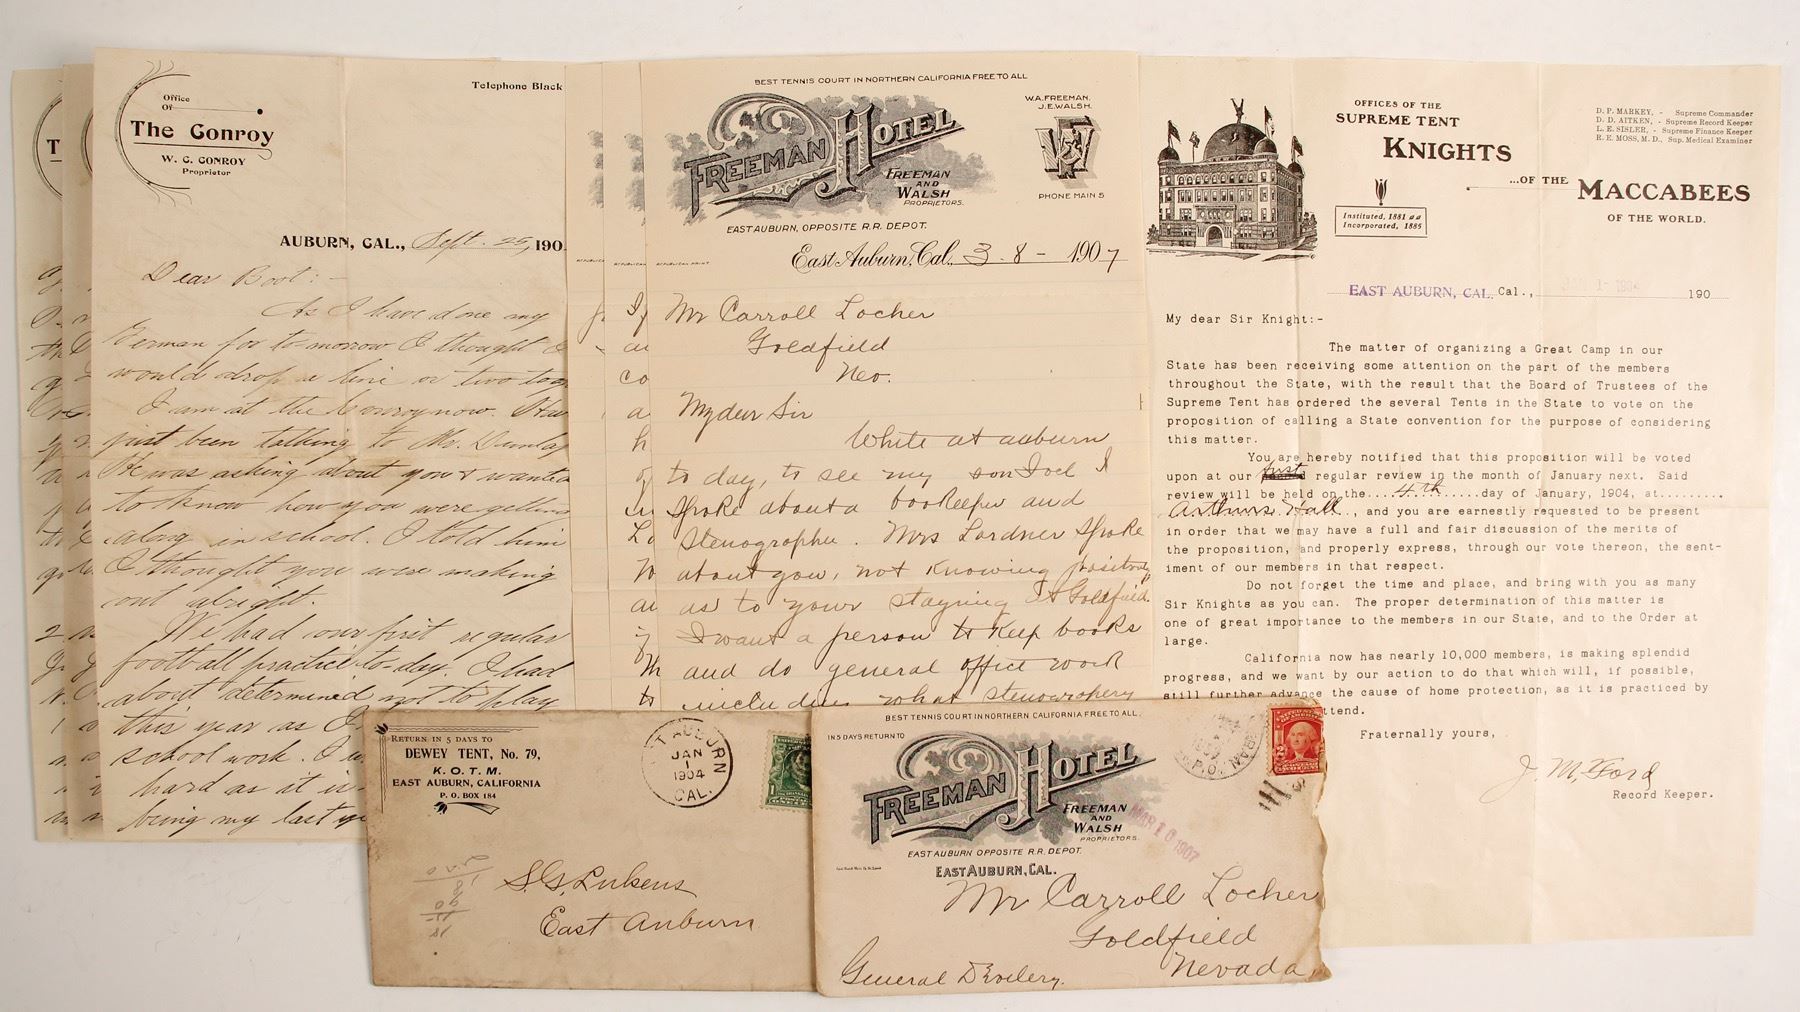 Office
Of
The Conroy
W. C. CONROY
Proprietor
Telephone Black
AUBURN, CAL., Sept. 25, 190
Dear Boot:-
As I have done my
German for to-morrow I thought I
would drop a line or two to
I am at the Conroy now. Have
just been talking to Mr. Dunlap
He was asking about you & wanted
to know how you were getting
along in school. I told him
I thought you were making
out alright.
We had our first regular
football practice to-day. I had
about determined not to play
this year as I
school work. I
hard as it is
being my last
BEST TENNIS COURT IN NORTHERN CALIFORNIA FREE TO ALL
FREEMAN HOTEL
FREEMAN
AND
WALSH
PROPRIETORS.
W.A. FREEMAN.
J.E. WALSH.
PHONE MAIN 5
EAST AUBURN, OPPOSITE R.R. DEPOT.
East Auburn, Cal. 3-8- 1907
REPUBLICAN PRINT
Mr Carroll Locher
Goldfield
Nev.
My dear Sir
While at auburn
to day, to see my son Joel I
spoke about a bookeeper and
stenographer. Mrs Lardner spoke
about you, not knowing positively
as to your staying at Goldfield.
I want a person to keep books
and do general office work
includes what stenography
OFFICES OF THE
SUPREME TENT
KNIGHTS
...OF THE MACCABEES
OF THE WORLD.
Instituted, 1881
Incorporated, 1885
D. P. MARKEY, - Supreme Commander
D. D. AITKEN, - Supreme Record Keeper
L. E. SISLER, - Supreme Finance Keeper
R. E. MOSS, M. D., Sup. Medical Examiner
EAST AUBURN, CAL. Cal., JAN 1- 1904 190
My dear Sir Knight:-
The matter of organizing a Great Camp in our
State has been receiving some attention on the part of the members
throughout the State, with the result that the Board of Trustees of the
Supreme Tent has ordered the several Tents in the State to vote on the
proposition of calling a State convention for the purpose of considering
this matter.
You are hereby notified that this proposition will be voted
upon at our first regular review in the month of January next. Said
review will be held on the....4th.....day of January, 1904, at.........
Arthurs Hall.., and you are earnestly requested to be present
in order that we may have a full and fair discussion of the merits of
the proposition, and properly express, through our vote thereon, the sent-
iment of our members in that respect.
Do not forget the time and place, and bring with you as many
Sir Knights as you can. The proper determination of this matter is
one of great importance to the members in our State, and to the Order at
large.
California now has nearly 10,000 members, is making splendid
progress, and we want by our action to do that which will, if possible,
still further advance the cause of home protection, as it is practiced by
ttend.
Fraternally yours,
J. M. Ford
Record Keeper.
RETURN IN 5 DAYS TO
DEWEY TENT, No. 79,
K. O. T. M.
EAST AUBURN, CALIFORNIA
P. O. BOX 184
T AUBURN
JAN
1
1904
CAL.
S. G. Lukens
East Auburn
BEST TENNIS COURT IN NORTHERN CALIFORNIA FREE TO ALL.
IN 5 DAYS RETURN TO
FREEMAN HOTEL
FREEMAN
AND
WALSH
PROPRIETORS.
EAST AUBURN OPPOSITE R.R. DEPOT.
EAST AUBURN, CAL.
MAR 10 1907
Mr Carroll Locher
Goldfield
Nevada,
General Delivery.